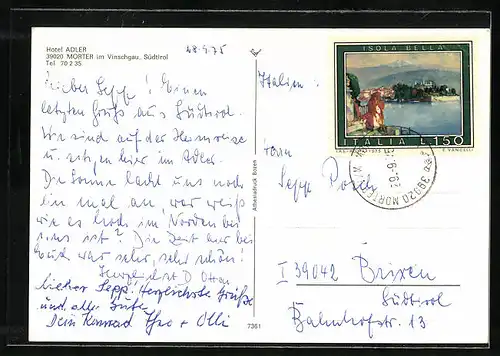 Hotel ADLER
39020 MORTER im Vinschgau, Südtirol
Tel 70 2 35
28.9.75
Lieber Sepp! Einen
letzten Gruß aus Südtirol.
Wir sind auf der Heimreise
u. sitzen hier im Adler.
Die Sonne lacht uns noch
ein mal an, wer weiß
wie es hoch im Norden bei
uns ist? Die Zeit hier bei
Euch war sehr, sehr schön!
Herzlichst D. Otto
Lieber Sepp! Herzlichste Grüße
und alles Gute
Dein Konrad Theo + Olli
Athesiadruck Bozen
7361
Italien
ISOLA BELLA
ITALIA L.150
39020 MORTER
Herrn
Sepp
I 39042 Brixen
Südtirol
Bahnhofstr. 13